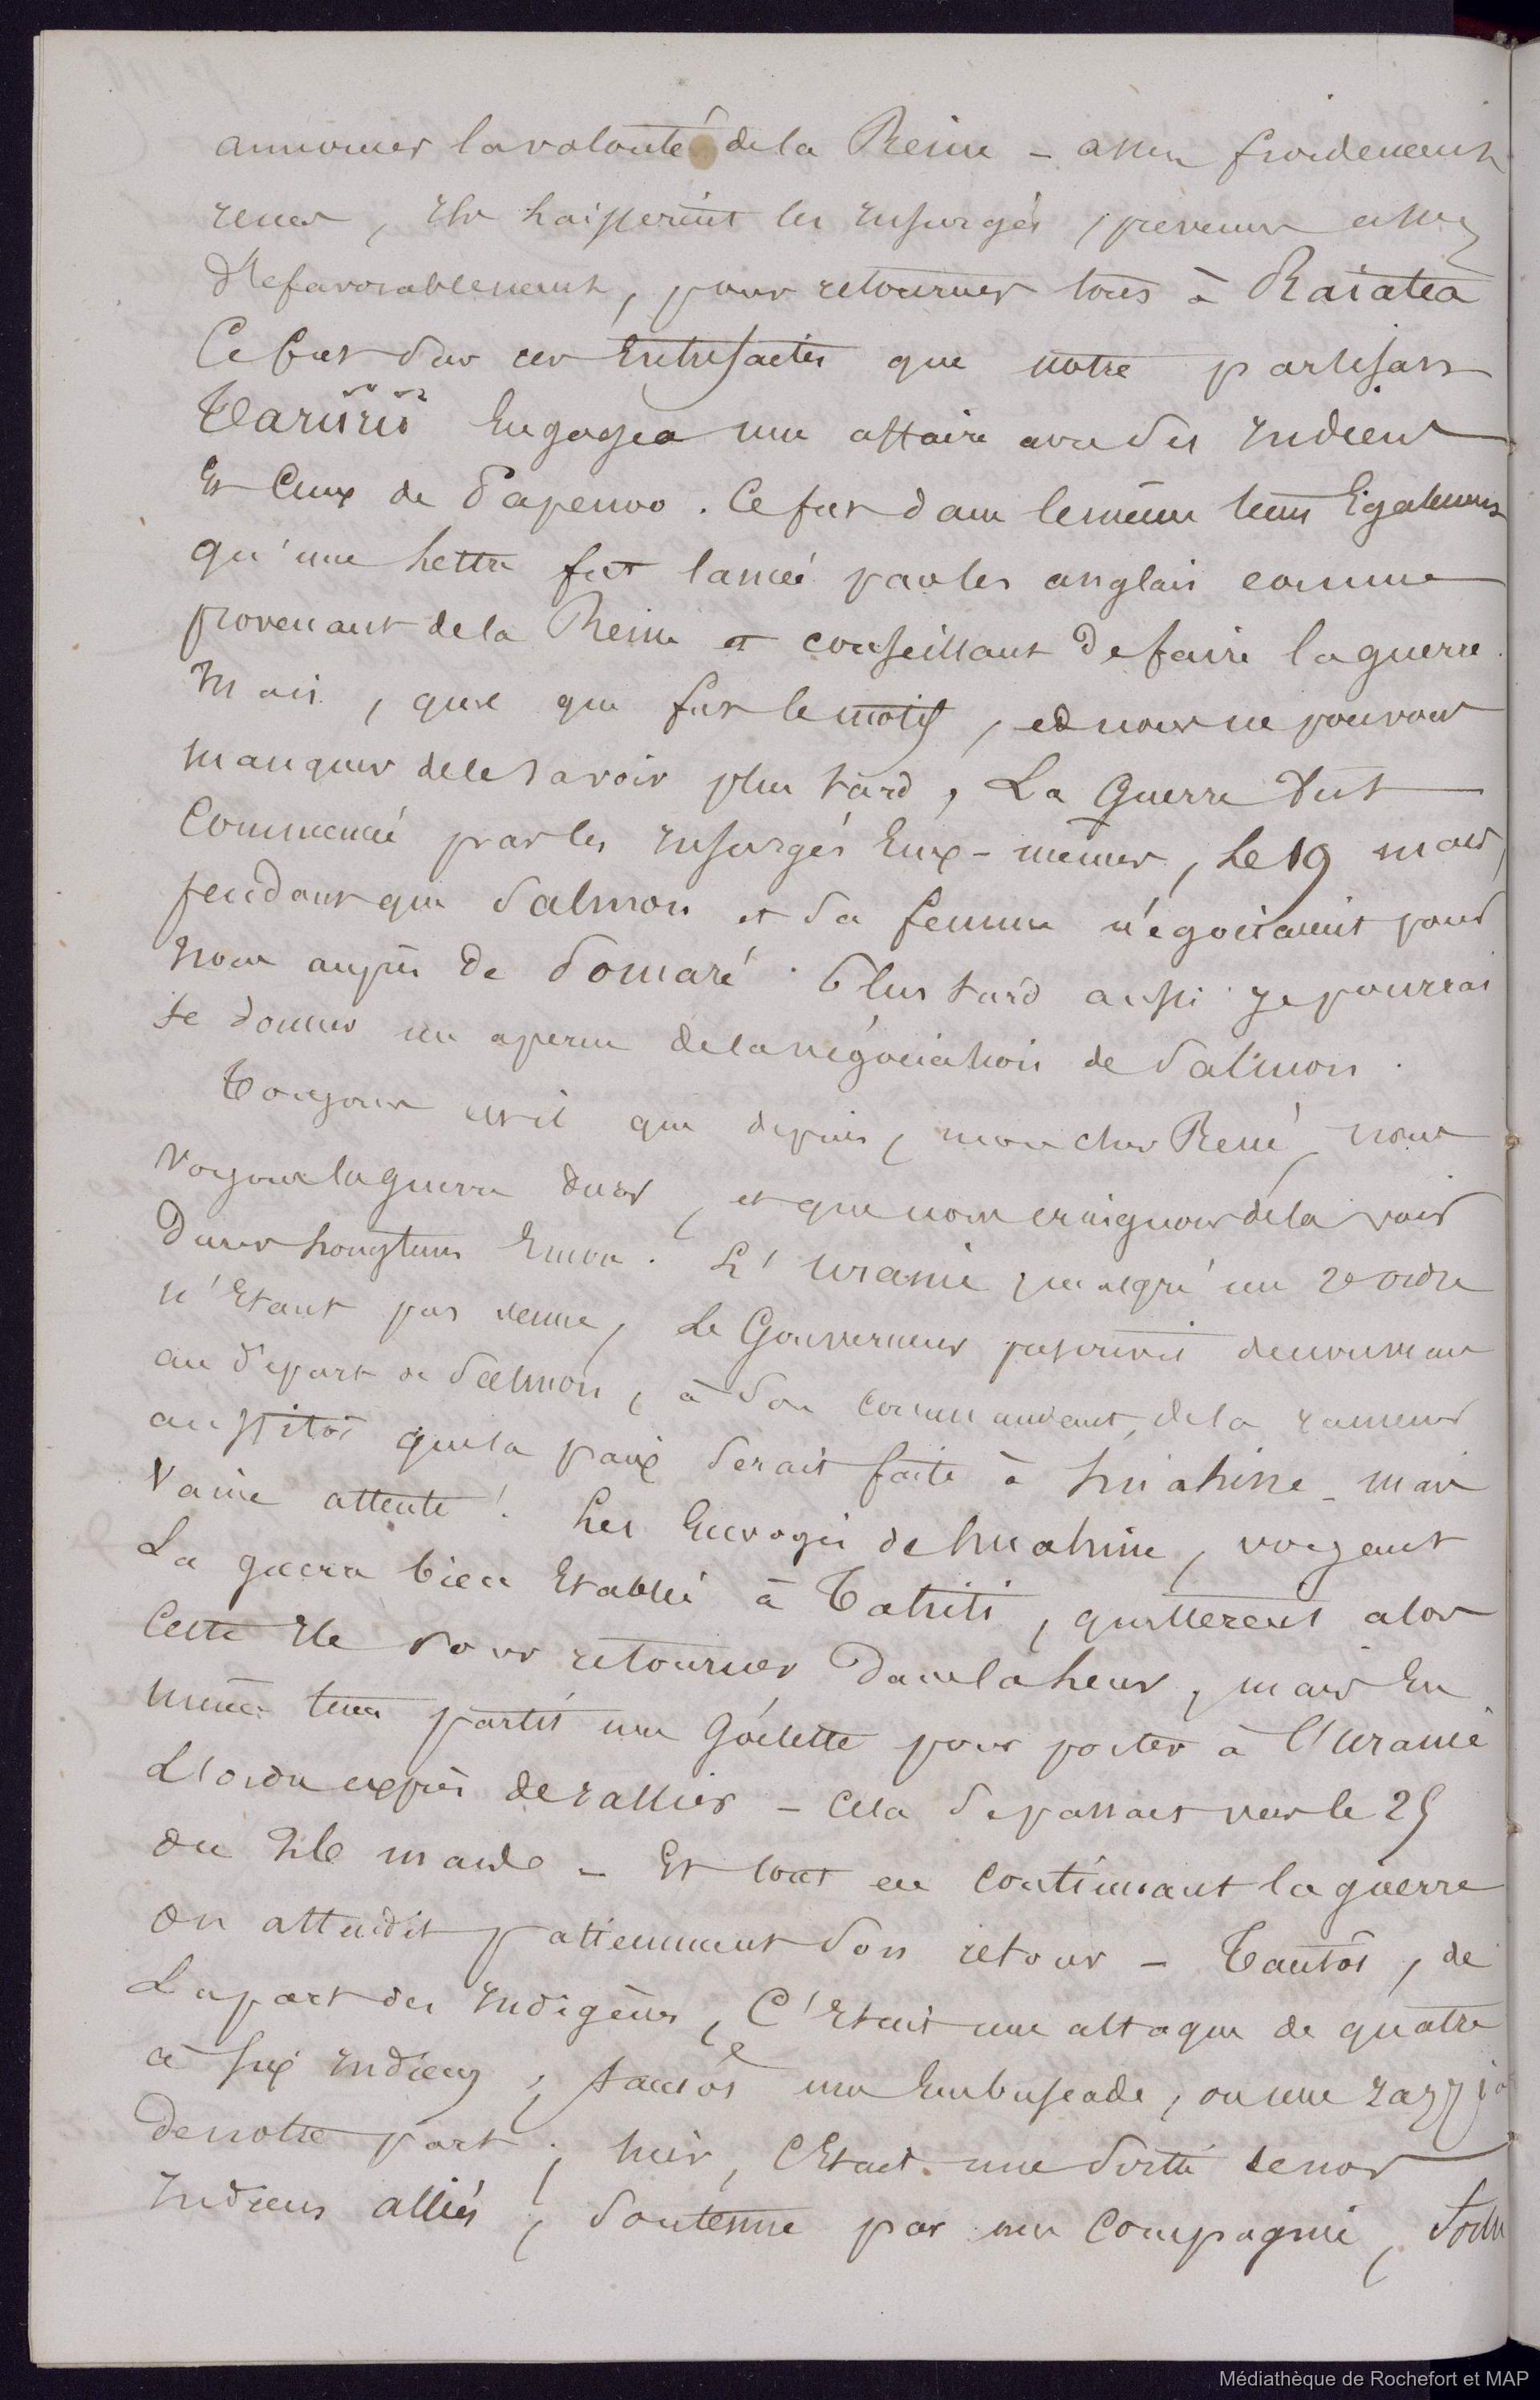 annoncer la volonté de la Reine – assez froidement
recus, ils laisserent les insurgés, prevenus assez
defavorablement, pour retourner tous à Raiatea
Ce fut sur ces entrefaites que notre partisan
Tariirii engagea une affaire avec ses indiens
Et Ceux de Papenoo. Ce fut dans le même tems Egalement
qu'une Lettre fut lancée par les anglais comme
provenant de la Reine et conseillant de faire la guerre.
Mais, quel que fut le motif, et nous ne pouvons
manquer de le savoir plus tard, La Guerre fut
Commencée par les insurgés Eux-mêmes, Le 19 mars,
pendant que Salmon et Sa femme négociaient pour
nous auprès de Pomaré. Plus tard aussi je pourrai
te donner un apercu de la négociation de Salmon.
Toujours est il que depuis, mon cher René, nous
voyons la guerre durer, et que nous craignons de la voir
Durer Longtems Encore. L'Uranie, malgré un 2e ordre
n'Etant pas venue, Le Gouverneur prescrivit
au départ de Salmon, à Son commandant, de la ramener
aussitôt que la paix Serait faite à Huahine – mais
Vaine attente! Les Envoyés de Huahine, voyant
La guerre bien Etablie à Tahiti, quitterent alors
Cette Ile pour retourner Dans la Leur, mais En
même tems partit une Goëlette pour porter à l'Uranie
L'ordre exprès de rallier – Cela Se passait vers le 25
ou 26 mars – Et tout en Continuant la guerre
On attendit patiemment Son retour – Tantôt, de
La part des indigènes, C'Etait une attaque de quatre
à Six indiens; tantôt une Embuscade, ou une razzia
De notre part; hier, C'Etait une Sortie de nos
Indiens alliés, Soutenue par une Compagnie,